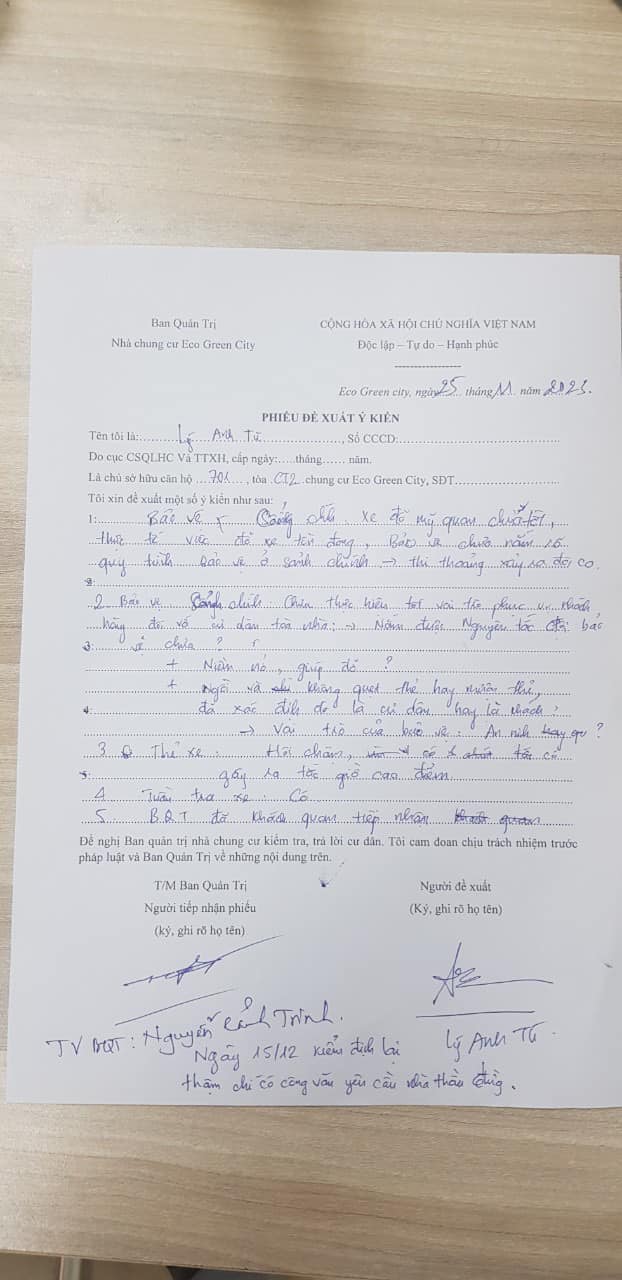 Ban Quản Trị
Nhà chung cư Eco Green City
CỘNG HÒA XÃ HỘI CHỦ NGHĨA VIỆT NAM
Độc lập – Tự do – Hạnh phúc
Eco Green city, ngày 25 tháng 11 năm 2023.
PHIẾU ĐỀ XUẤT Ý KIẾN
Tên tôi là: Lý Anh Tú, Số CCCD:
Do cục CSQLHC Và TTXH, cấp ngày: tháng năm.
Là chủ sở hữu căn hộ 701, tòa CT2 chung cư Eco Green City, SĐT
Tôi xin đề xuất một số ý kiến như sau:
1: Bảo vệ Sảnh chính. xe đỗ mỹ quan chưa tốt,
thực tế việc đỗ xe tồn đọng, Bảo vệ chưa nắm rõ
quy trình bảo vệ ở sảnh chính → thi thoảng xảy ra đôi co.
2. Bảo vệ Sảnh chính: Chưa thực hiện tốt vai trò phục vụ khách
hàng đối với cư dân tòa nhà: → Nắm được Nguyên tắc bảo
3: vệ chưa?
+ Niềm nở, giúp đỡ?
+ Ngồi và không quẹt thẻ hay mượn thẻ,
4: đã xác định đó là cư dân hay là khách?
→ Vai trò của bảo vệ: An ninh ?
3 Thẻ xe: Hơi chậm, tất cả
5: gây ra tắc giờ cao điểm
4. Tuần tra xe: Có
5. BQT đã khách quan tiếp nhận
Đề nghị Ban quản trị nhà chung cư kiểm tra, trả lời cư dân. Tôi cam đoan chịu trách nhiệm trước
pháp luật và Ban Quản Trị về những nội dung trên.
T/M Ban Quản Trị
Người tiếp nhận phiếu
(ký, ghi rõ họ tên)
Người đề xuất
(Ký, ghi rõ họ tên)
TV BQT: Nguyễn Cảnh Trinh.
Lý Anh Tú.
Ngày 15/12 kiểm định lại
thậm chí có công văn yêu cầu nhà thầu dừng.